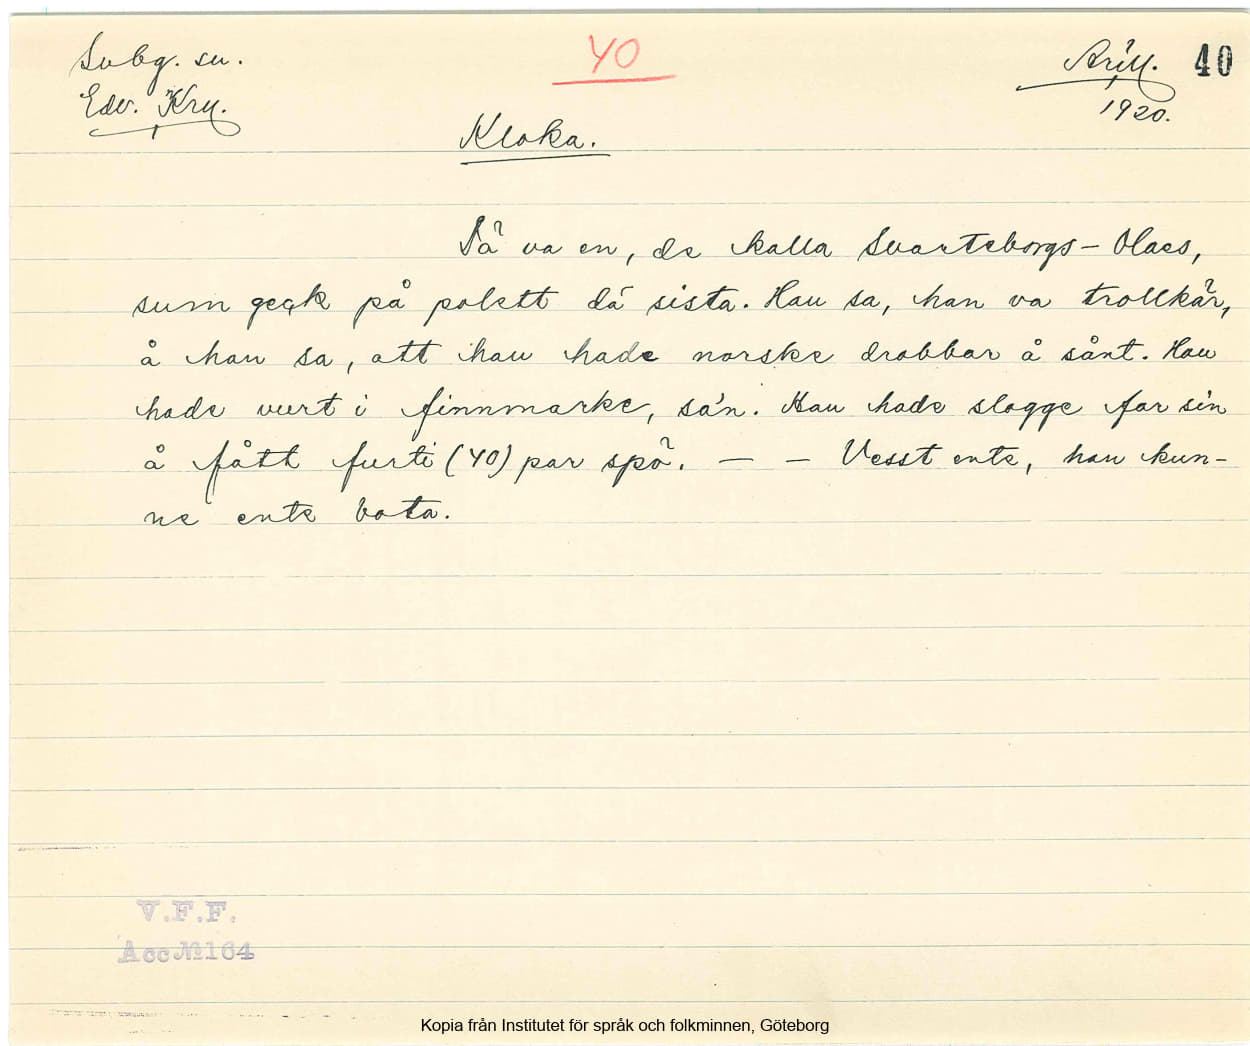 Svbg. sn.
Edv. Kru.
40
Arill. 40
1920.
Kloka.
Dä va en, de kalla Svarteborgs-Olaes,
sum geck på polett då sista. Hau sa, han va trollkãr,
å hau sa, att hau hade norske drabbar å sånt. Hau
hade vurt i finnmarke, sa'n. Hau hade slagge far sin
å fått furti (40) par spö. — — Vesst ente, hau kun-
ne ente bota.
V.F.F.
Acc №164
Kopia från Institutet för språk och folkminnen, Göteborg